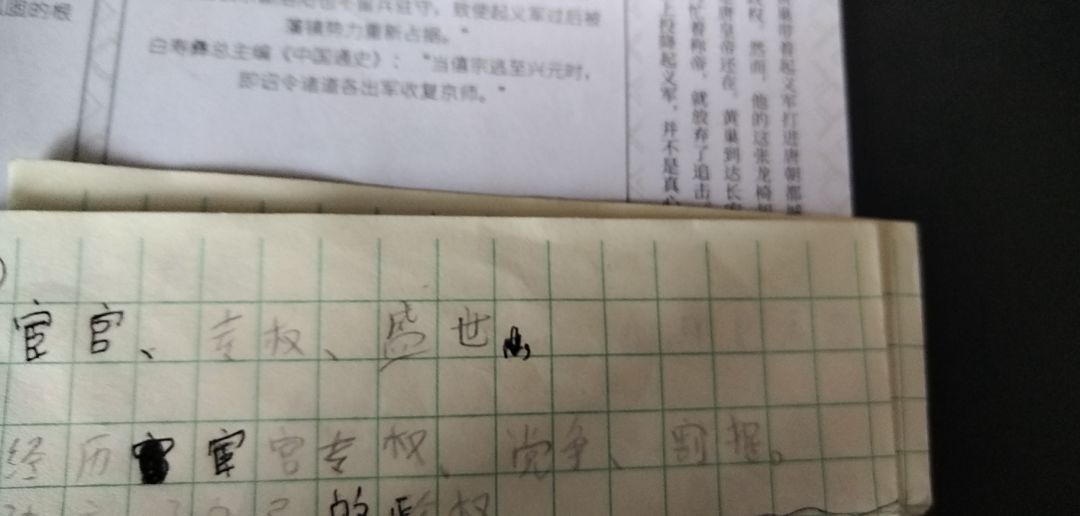 固的根
兵驻守，致使起义军过后被
藩镇势力重新占据。”
白寿彝总主编《中国通史》：“当僖宗逃至兴元时，
即诏令诸道各出军收复京师。”
巢带着起义军打进唐朝都城
权，然而，他的这张龙椅
唐皇帝还在，黄巢到达长安
忙着称帝，就放弃了追击
上投降起义军，并不是真心
宦官、专权、盛世
经历宦官专权、党争、割据。
的 权